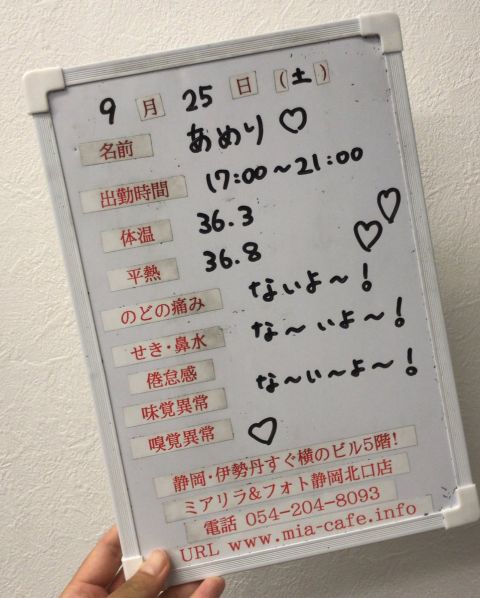 9 月 25 日 (土)
名前 あめり♡
出勤時間 17:00～21:00
体温 36.3
平熱 36.8 ♡♡
のどの痛み ないよ～!
せき・鼻水 な～いよ～!
倦怠感 な～い～よ～!
味覚異常
嗅覚異常 ♡
静岡・伊勢丹すぐ横のビル5階!
ミアリラ&フォト静岡北口店
電話 054-204-8093
URL www.mia-cafe.info